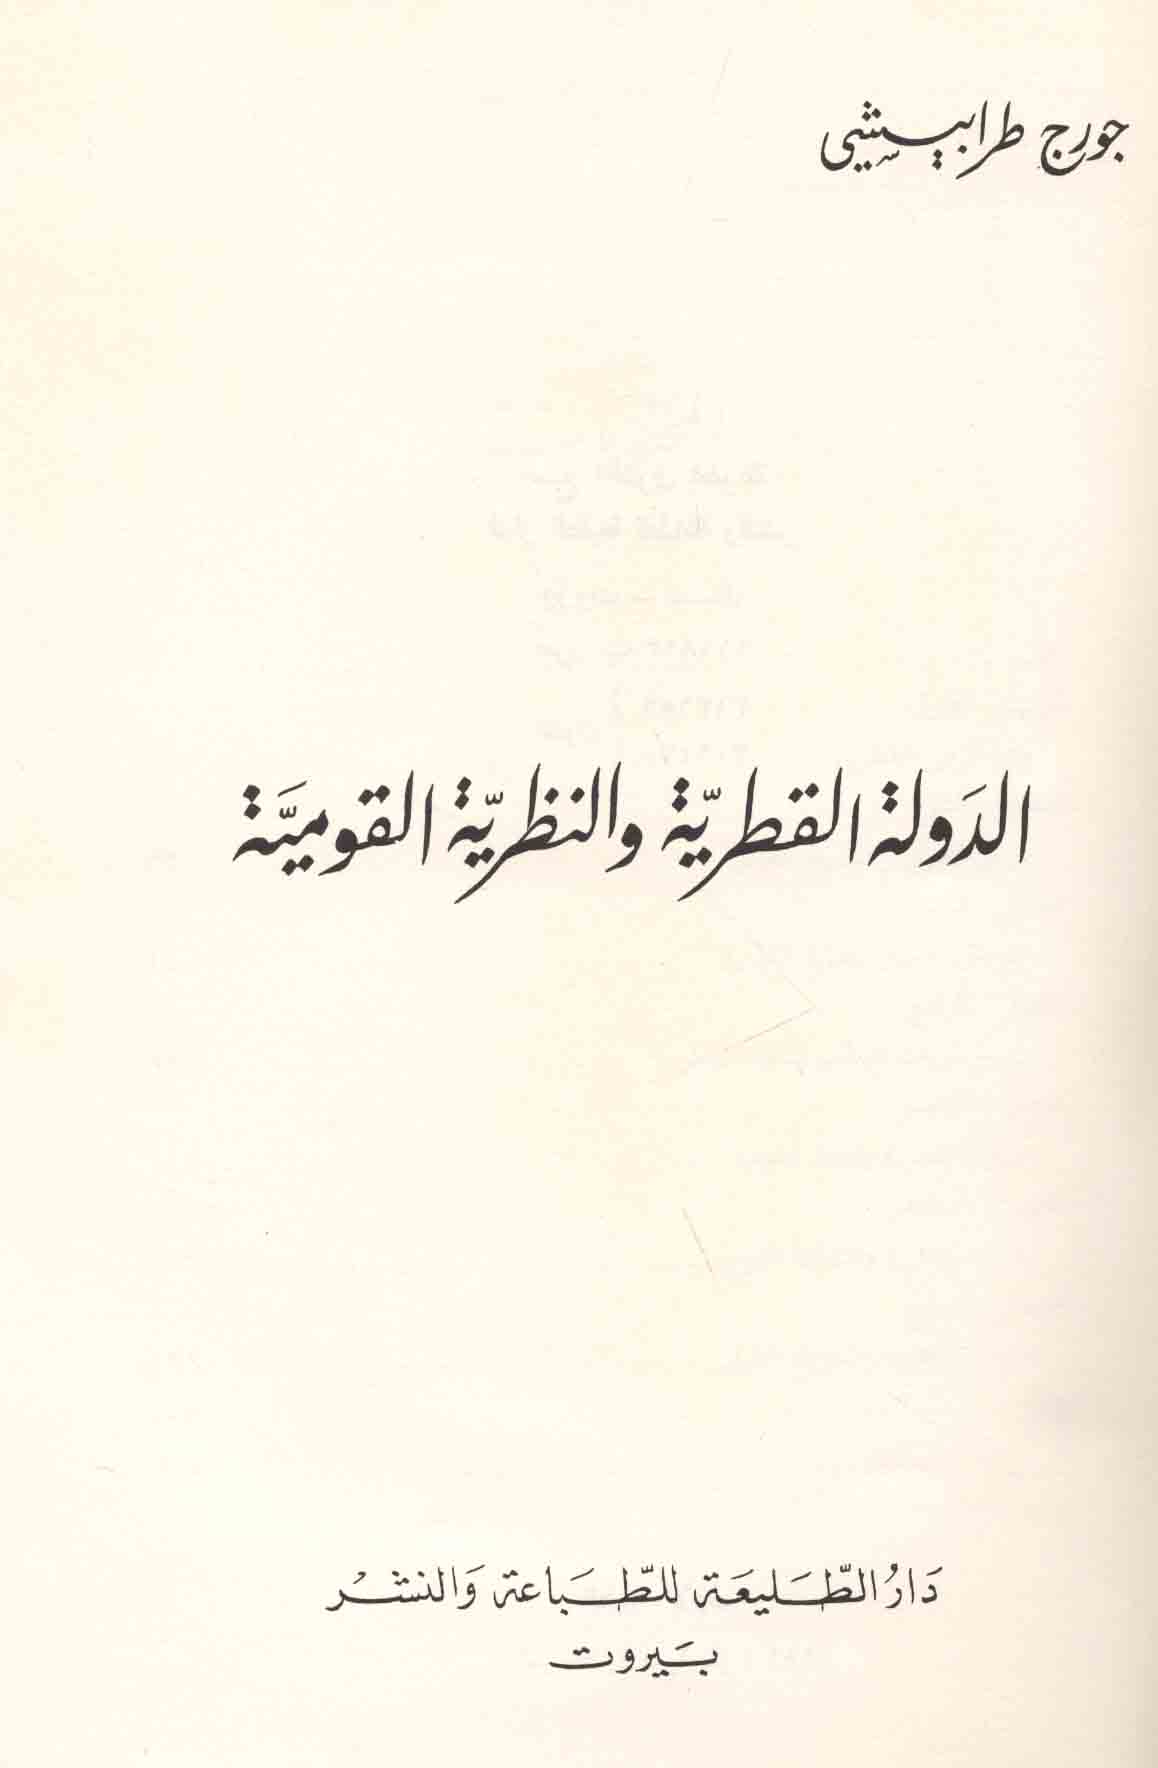 جورج طرابيشي
الدَولة القطريّة والنظريّة القوميَّة
دَارُ الطَّليعَة للطِّبَاعَة وَالنشْر
بَيروت